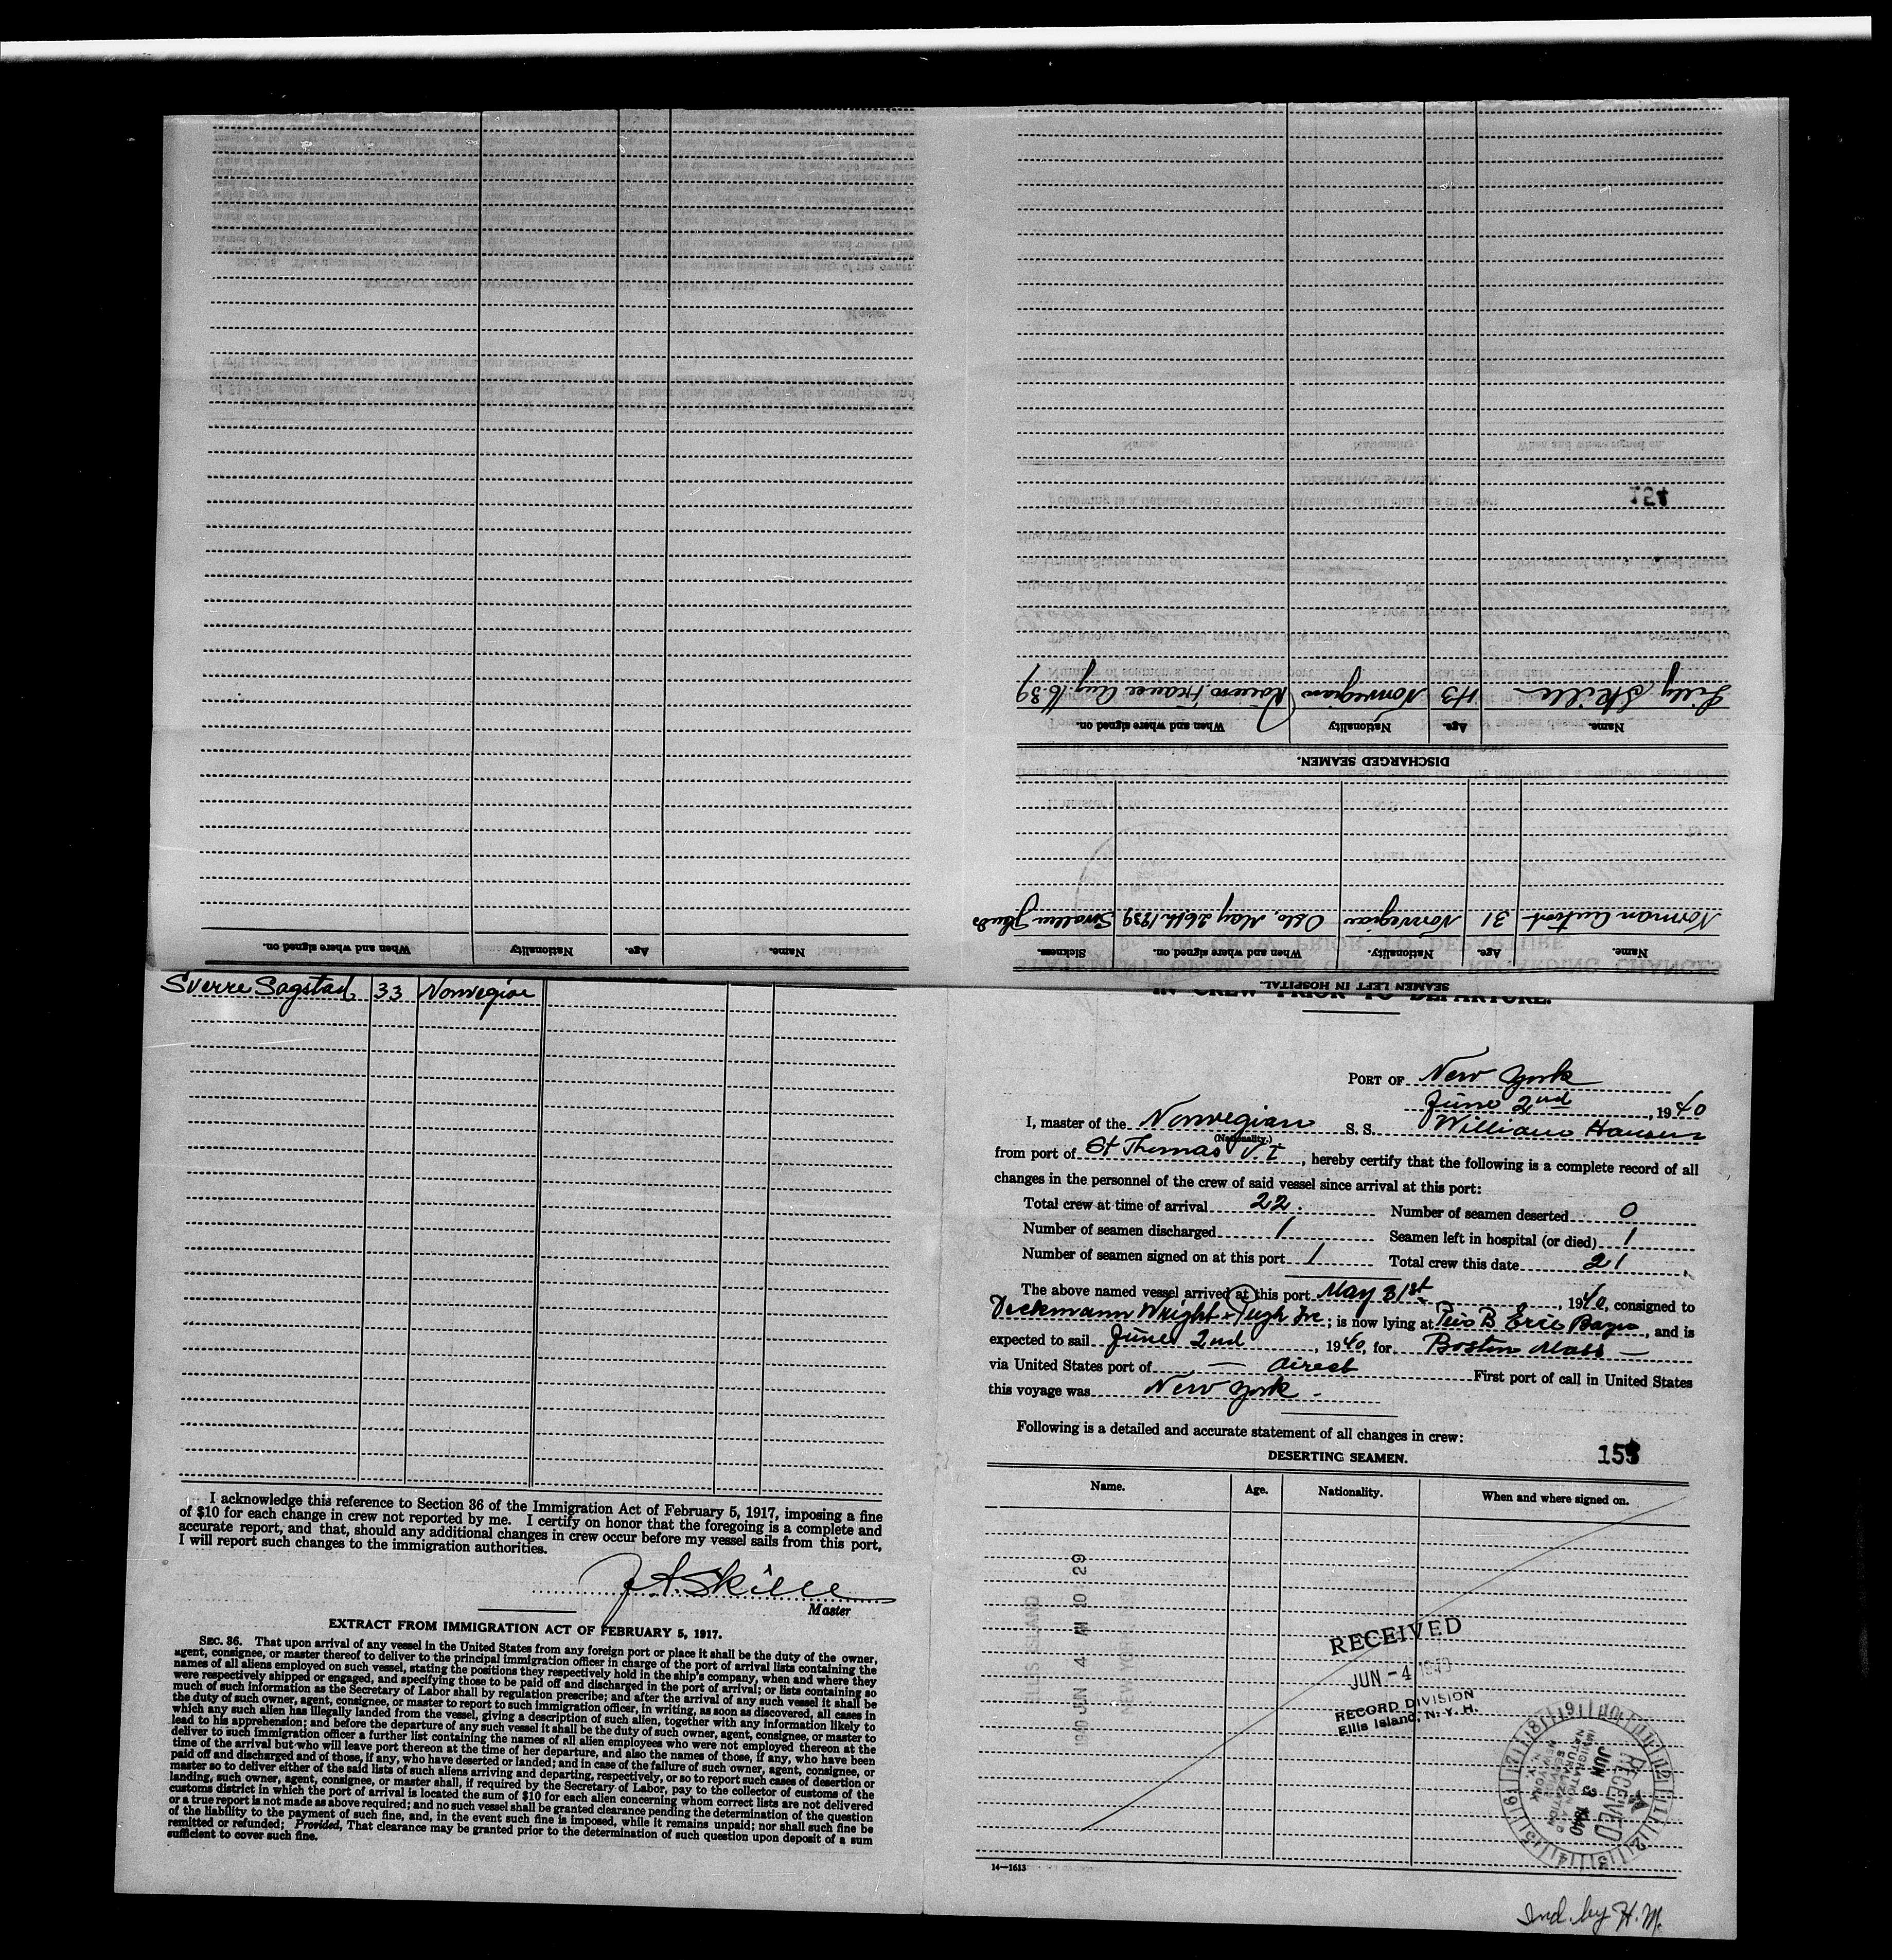 Name. Age. Nationality When and where signed on.
SEAMEN LEFT IN HOSPITAL.
Name. Age. Nationality. When and where signed on. Sickness.
Norman 31 Norwegian Oslo, May 26th 1939 Swollen
DISCHARGED SEAMEN.
Name. Age. Nationality When and where signed on.
Lilly Skille 43 Norwegian Rouen France Aug. 16.39
Sverre Sagstad 33 Norwegian
I acknowledge this reference to Section 36 of the Immigration Act of February 5, 1917, imposing a fine
of $10 for each change in crew not reported by me. I certify on honor that the foregoing is a complete and
accurate report, and that, should any additional changes in crew occur before my vessel sails from this port,
I will report such changes to the immigration authorities.
Skille
Master
EXTRACT FROM IMMIGRATION ACT OF FEBRUARY 5, 1917.
SEC. 36. That upon arrival of any vessel in the United States from any foreign port or place it shall be the duty of the owner,
agent, consignee, or master thereof to deliver to the principal immigration officer in charge of the port of arrival lists containing the
names of all aliens employed on such vessel, stating the positions they respectively hold in the ship's company, when and where they
were respectively shipped or engaged, and specifying those to be paid off and discharged in the port of arrival; or lists containing so
much of such information as the Secretary of Labor shall by regulation prescribe; and after the arrival of any such vessel it shall be
the duty of such owner, agent, consignee, or master to report to such immigration officer, in writing, as soon as discovered, all cases in
which any such alien has illegally landed from the vessel, giving a description of such alien, together with any information likely to
lead to his apprehension; and before the departure of any such vessel it shall be the duty of such owner, agent, consignee, or master to
deliver to such immigration officer a further list containing the names of all alien employees who were not employed thereon at the
time of the arrival but who will leave port thereon at the time of her departure, and also the names of those, if any, who have been
paid off and discharged and of those, if any, who have deserted or landed; and in case of the failure of such owner, agent, consignee, or
master so to deliver either of the said lists of such aliens arriving and departing, respectively, or so to report such cases of desertion or
landing, such owner, agent, consignee, or master shall, if required by the Secretary of Labor, pay to the collector of customs of the
customs district in which the port of arrival is located the sum of $10 for each alien concerning whom correct lists are not delivered
or a true report is not made as above required; and no such vessel shall be granted clearance pending the determination of the question
of the liability to the payment of such fine, and, in the event such fine is imposed, while it remains unpaid; nor shall such fine be
remitted or refunded; Provided, That clearance may be granted prior to the determination of such question upon deposit of a sum
sufficient to cover such fine.
IN CREW PRIOR TO DEPARTURE.
PORT OF New York
June 2nd, 1940
I, master of the Norwegian S. S. William Hansen
(Nationality.)
from port of St Thomas V. I, hereby certify that the following is a complete record of all
changes in the personnel of the crew of said vessel since arrival at this port:
Total crew at time of arrival 22. Number of seamen deserted 0
Number of seamen discharged 1 Seamen left in hospital (or died) 1
Number of seamen signed on at this port 1 Total crew this date 21
The above named vessel arrived at this port May 31st, 1940, consigned to
Dickmann Wright & Pugh Inc; is now lying at B Erie Basin, and is
expected to sail June 2nd, 1940, for Boston Mass —
via United States port of — direct First port of call in United States
this voyage was New York.
Following is a detailed and accurate statement of all changes in crew:
DESERTING SEAMEN.
Name. Age. Nationality. When and where signed on.
ELLIS ISLAND
1940 JUN 4 AM 10 29
RECEIVED
JUN -4 1940
RECORD DIVISION
Ellis Island, N. Y. H.
RECEIVED
JUN 3 1940
IMMIGRATION AND
NATURALIZATION
SERVICE
NEW YORK
14—1613
Ind. by H. M.